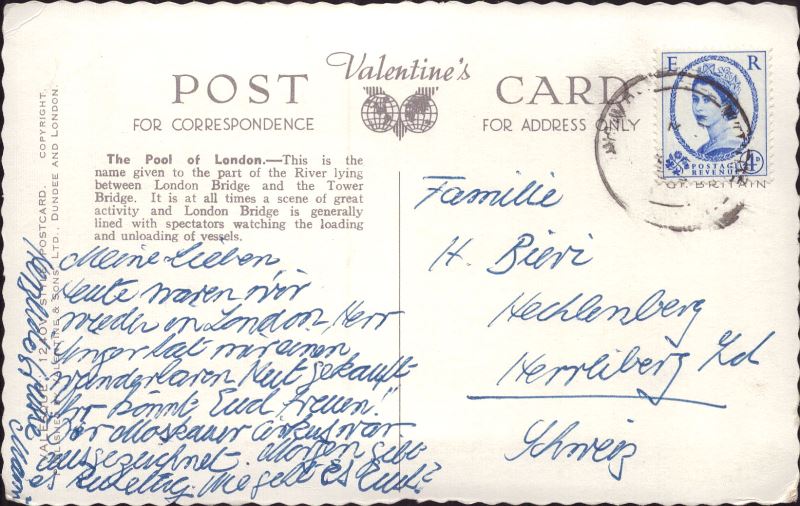 POST Valentine's CARD
FOR CORRESPONDENCE
FOR ADDRESS ONLY
E R
POSTAGE
REVENUE
4D
BRITAIN
The Pool of London.—This is the
name given to the part of the River lying
between London Bridge and the Tower
Bridge. It is at all times a scene of great
activity and London Bridge is generally
lined with spectators watching the loading
and unloading of vessels.
Meine Lieben
Heute waren wir
wieder in London. Herr
Unger hat mir einen
wunderbaren Hut gekauft
Ihr könnt Euch freuen!
Der Moskauer Cirkus war
ausgezeichnet. Morgen gibt
es Ruhetag. Wie geht es Euch?
Herzliche Grüsse
Mami
Familie
H. Bieri
Hechlenberg
Herrliberg Zd
Schweiz
POSTCARD. COPYRIGHT.
VALENTINE & SONS, LTD., DUNDEE AND LONDON.